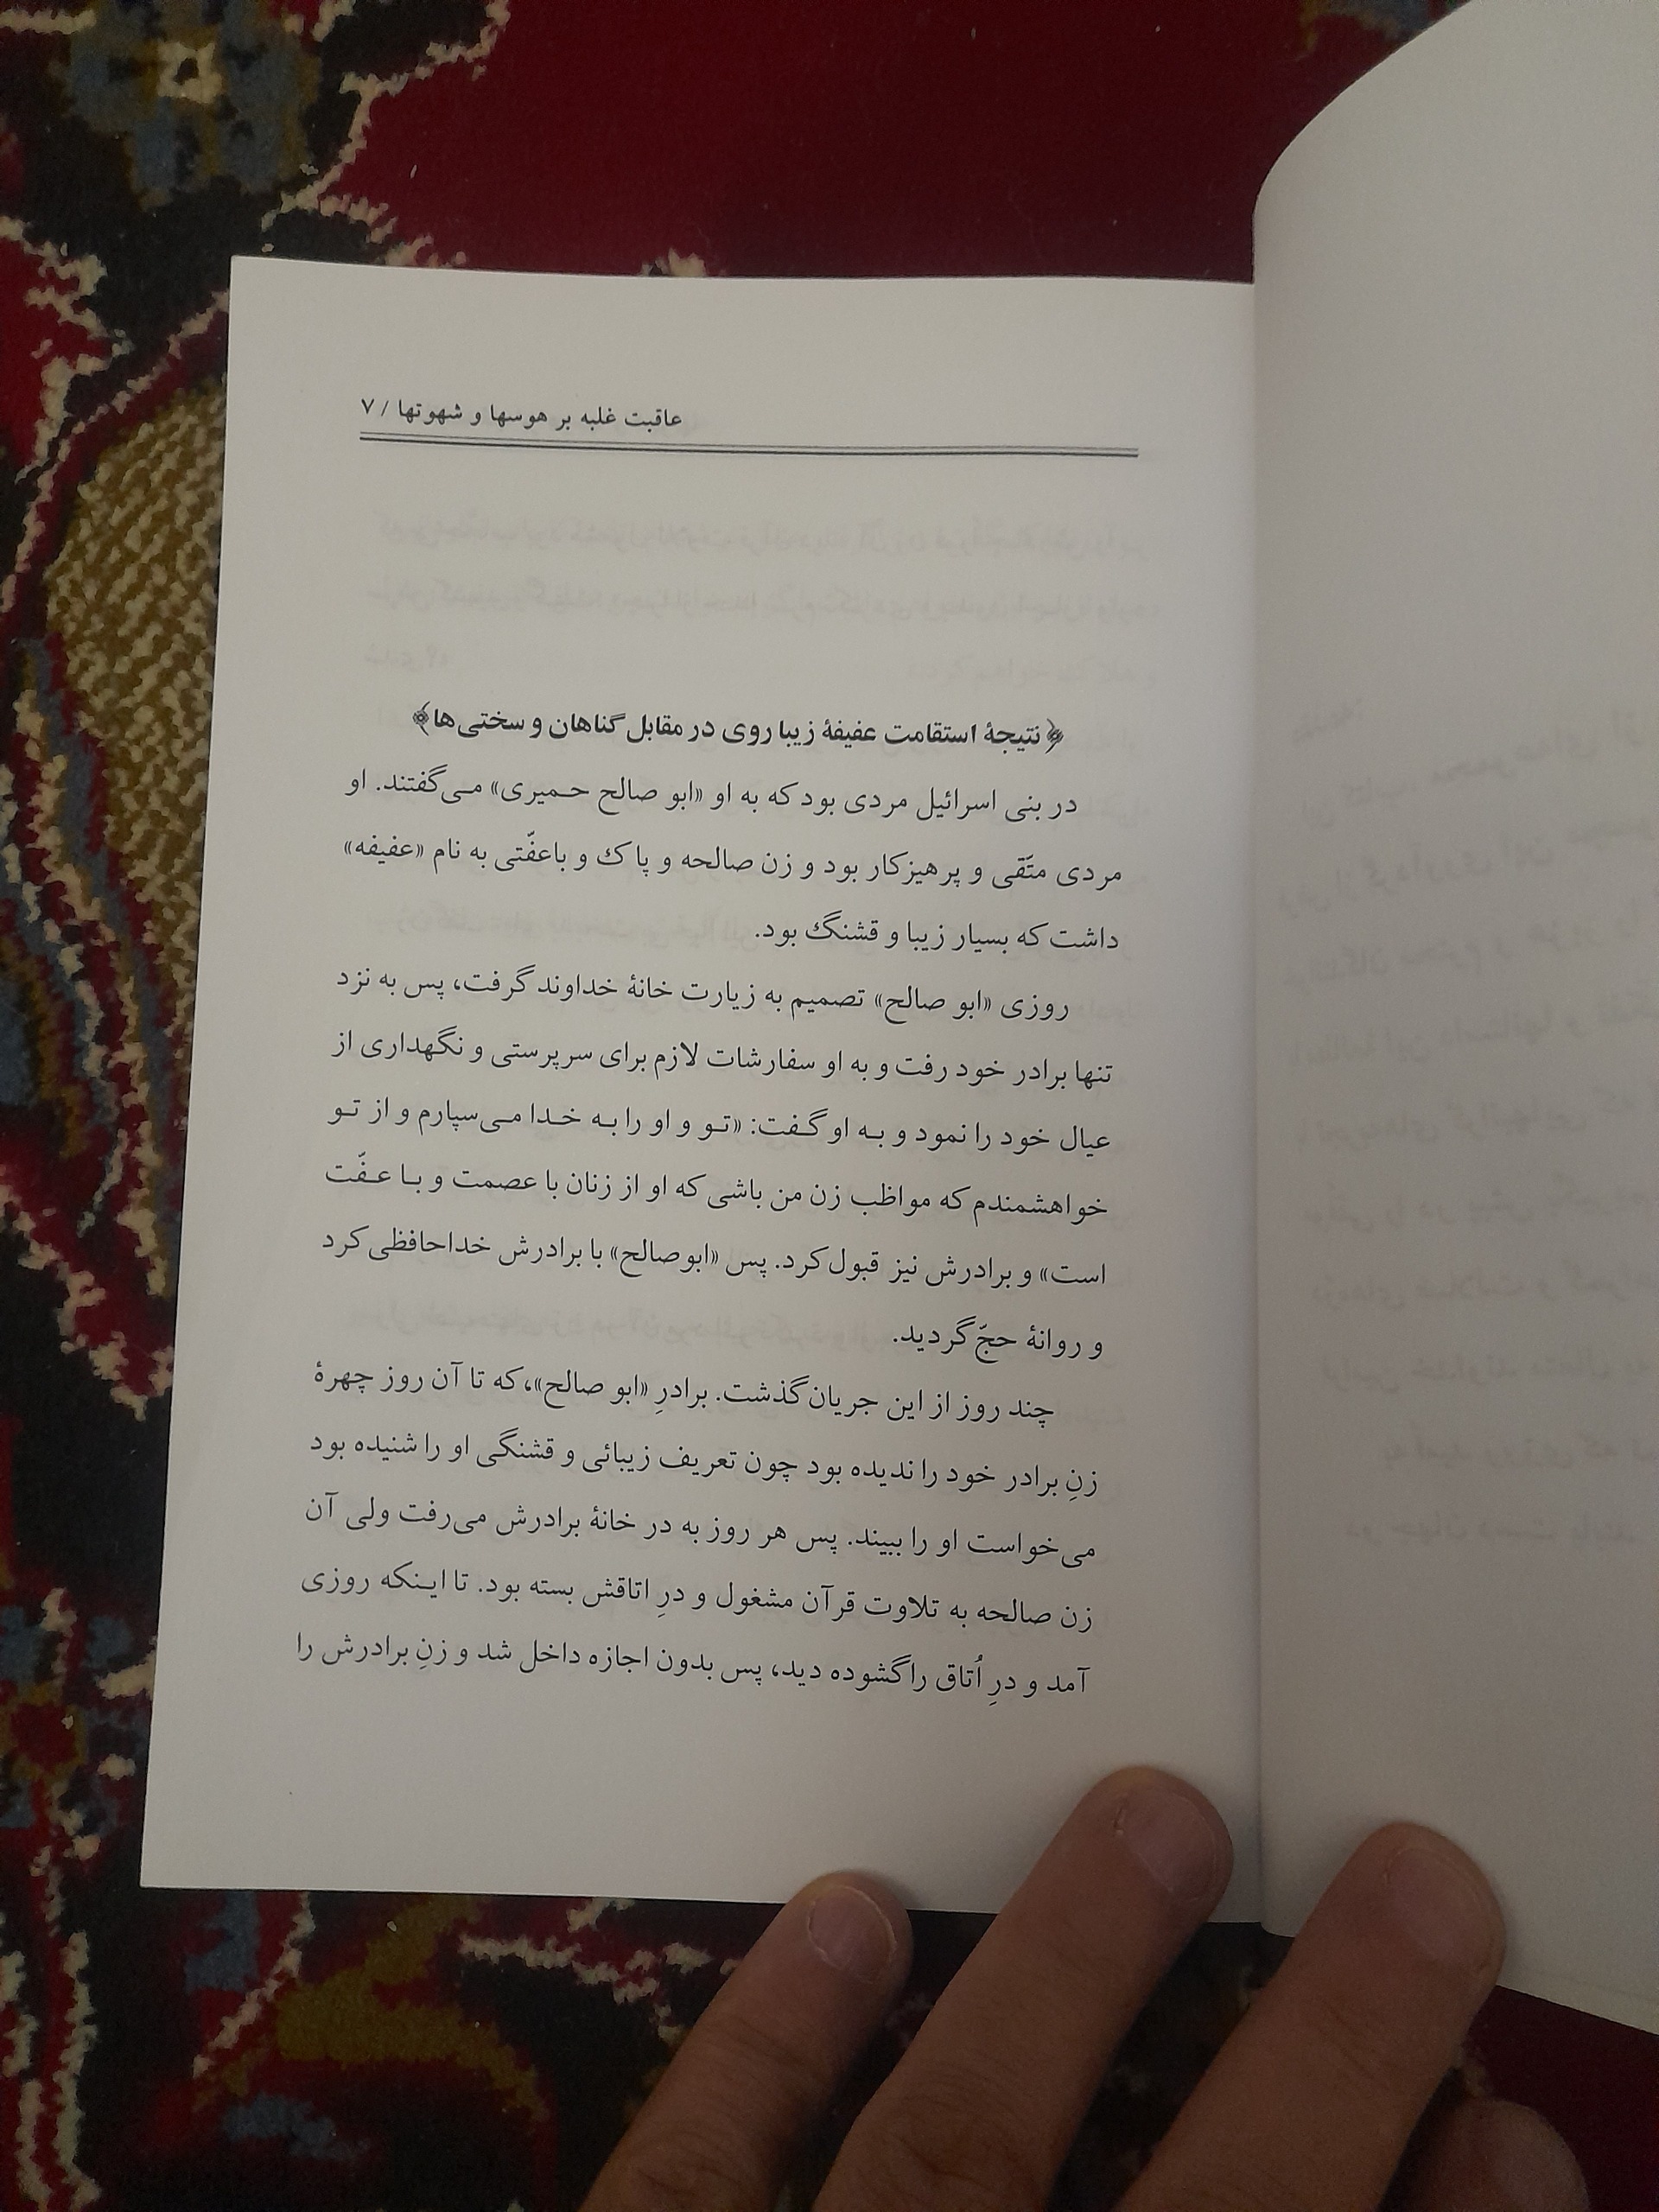 عاقبت غلبه بر هوسها و شهوتها / ۷
﴿نتیجهٔ استقامت عفیفهٔ زیبا روی در مقابل گناهان و سختی‌ها﴾
در بنی اسرائیل مردی بود که به او «ابو صالح حـمیری» مـی‌گفتند. او
مردی متّقی و پرهیزکار بود و زن صالحه و پاک و باعفّتی به نام «عفیفه»
داشت که بسیار زیبا و قشنگ بود.
روزی «ابو صالح» تصمیم به زیارت خانهٔ خداوند گرفت، پس به نزد
تنها برادر خود رفت و به او سفارشات لازم برای سرپرستی و نگهداری از
عیال خود را نمود و بـه او گـفت: «تـو و او را بـه خـدا مـی‌سپارم و از تـو
خواهشمندم که مواظب زن من باشی که او از زنان با عصمت و بـا عـفّت
است» و برادرش نیز قبول کرد. پس «ابوصالح» با برادرش خداحافظی کرد
و روانهٔ حجّ گردید.
چند روز از این جریان گذشت. برادرِ «ابو صالح»، که تا آن روز چهرهٔ
زنِ برادر خود را ندیده بود چون تعریف زیبائی و قشنگی او را شنیده بود
می‌خواست او را ببیند. پس هر روز به در خانهٔ برادرش می‌رفت ولی آن
زن صالحه به تلاوت قرآن مشغول و درِ اتاقش بسته بود. تا ایـنکه روزی
آمد و درِ اُتاق را گشوده دید، پس بدون اجازه داخل شد و زنِ برادرش را